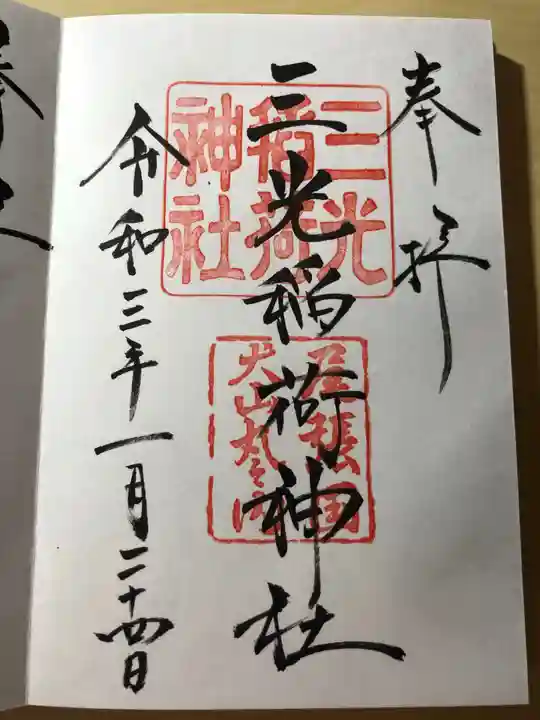 奉拝
三光稲荷神社
三光
稲荷
神社
尾張国
犬山丸之内
令和三年一月二十四日